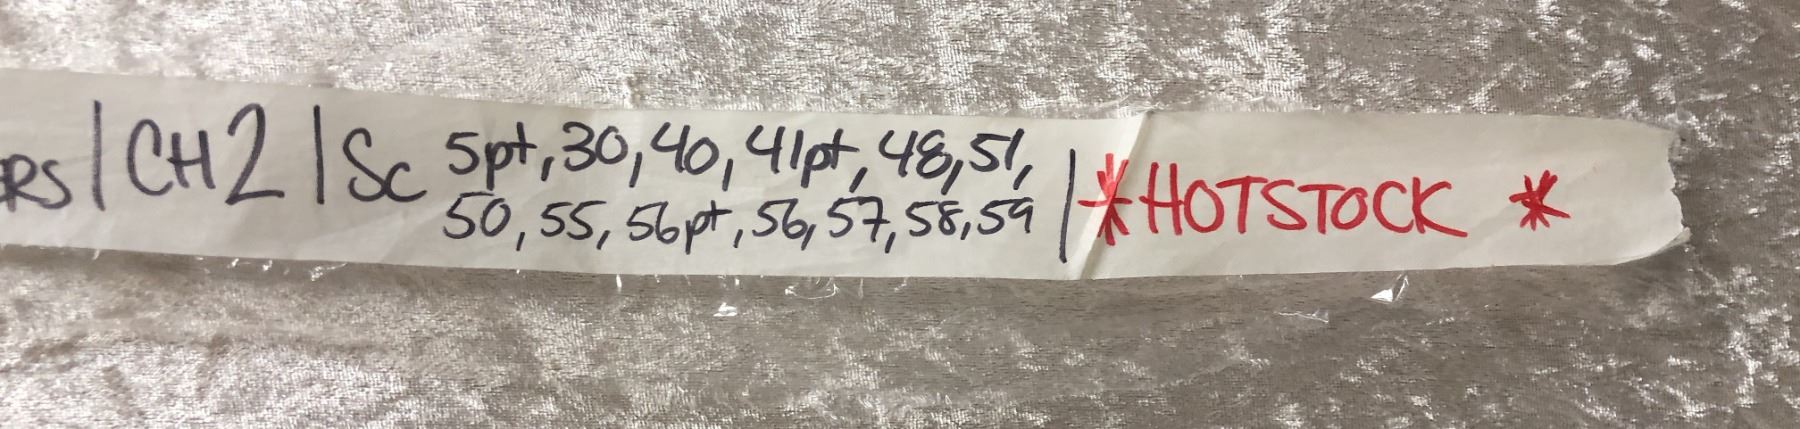 RS | CH2 | Sc 5pt, 30, 40, 41pt, 48, 51,
50, 55, 56pt, 56, 57, 58, 59 | *HOTSTOCK *